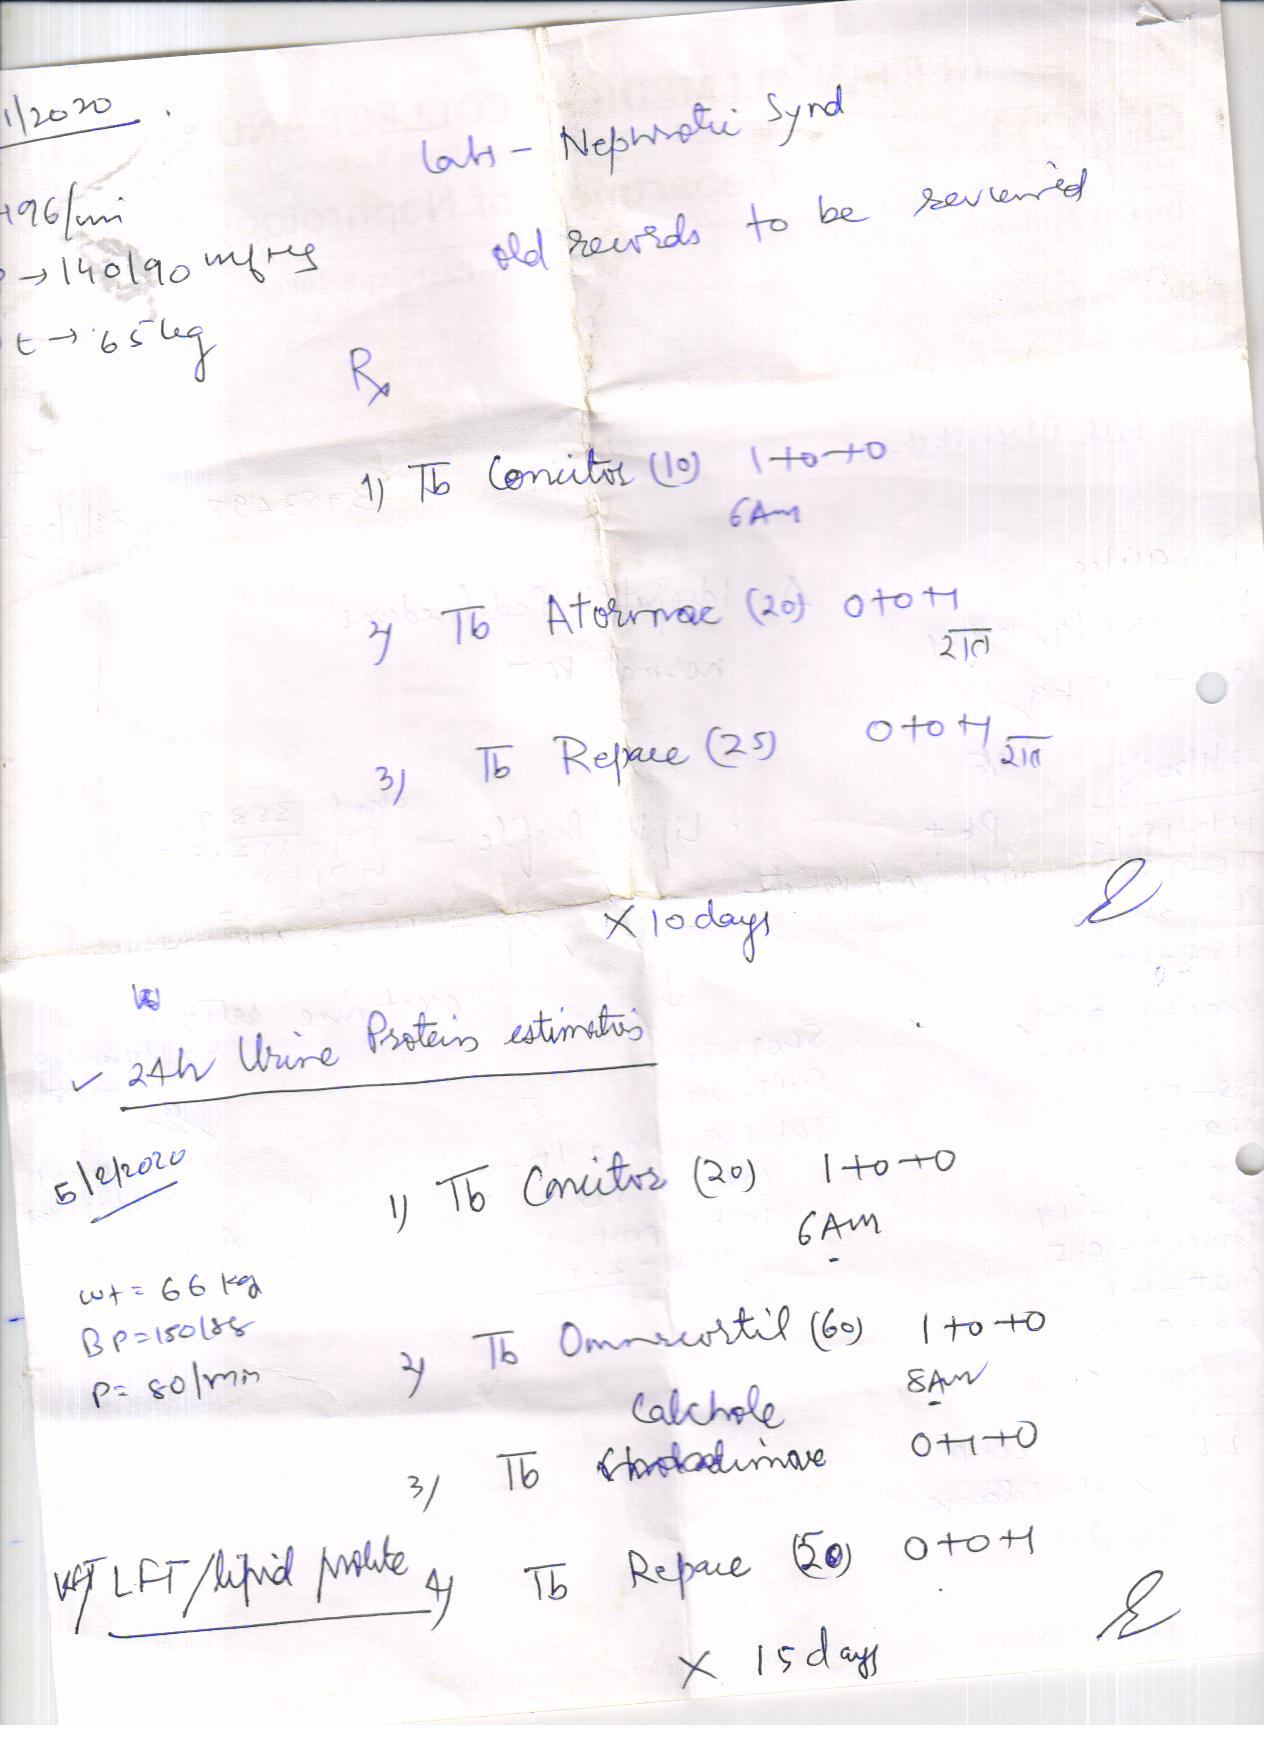 1/2020
Labs - Nephrotic Synd
96/min
old records to be reviewed
→ 140/90 mmHg
t → 65 kg
Rx
1) Tb Concitor (10) 1+0+0
6 Am
2) Tb Atormac (20) 0+0+1
रात
3) Tb Repace (25) 0+0+1 रात
X 10 days
✓ 24h Urine Protein estimation
5/2/2020
1) Tb Concitor (20) 1+0+0
6 AM
wt = 66 kg
BP = 150/88
P = 80/min
2) Tb Omnacortil (60) 1+0+0
8 Am
Calchole
3) Tb 0+1+0
KFT LFT/lipid profile
4) Tb Repace (50) 0+0+1
X 15 days